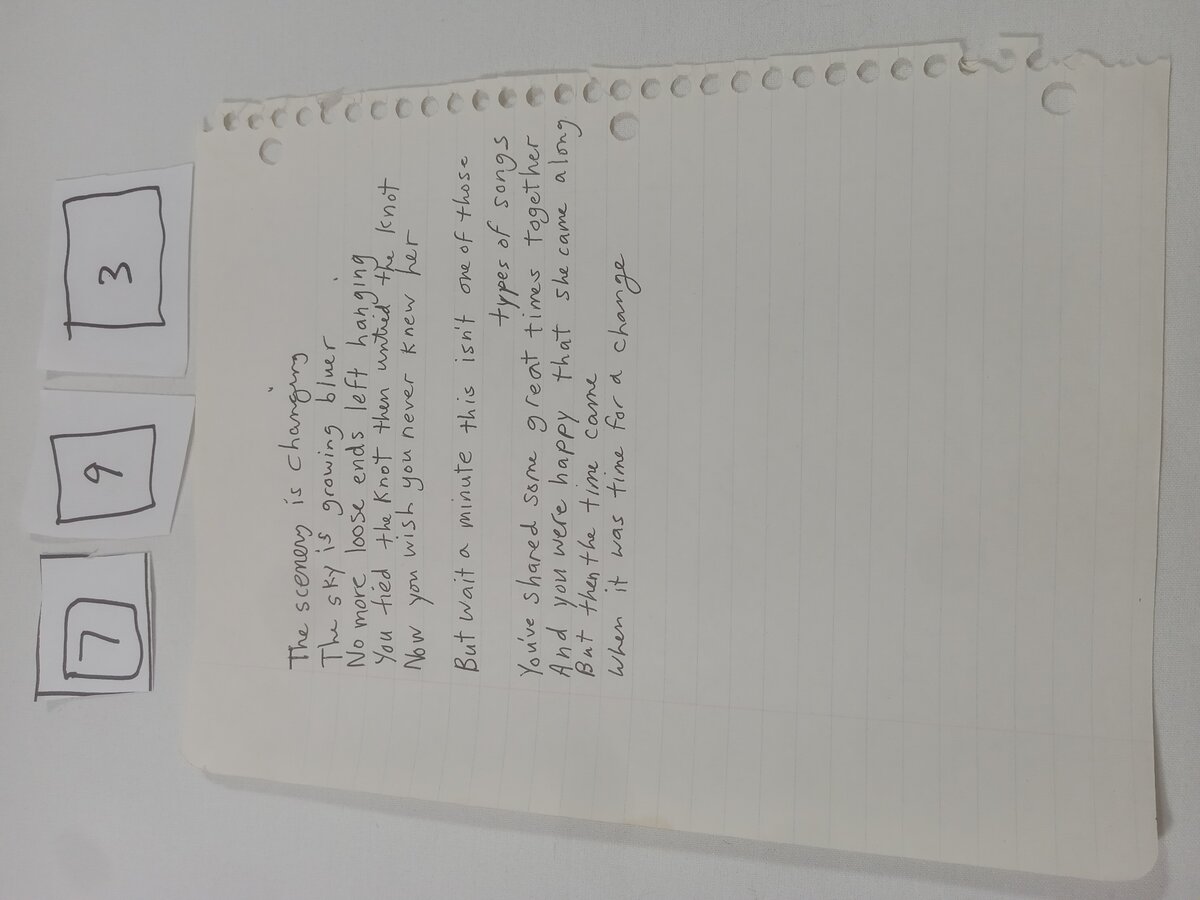 7 9 3
The scenery is changing
The sky is growing bluer
No more loose ends left hanging
You tied the knot then untied the knot
Now you wish you never knew her
But wait a minute this isn't one of those
types of songs
You've shared some great times together
And you were happy that she came along
But then the time came
When it was time for a change